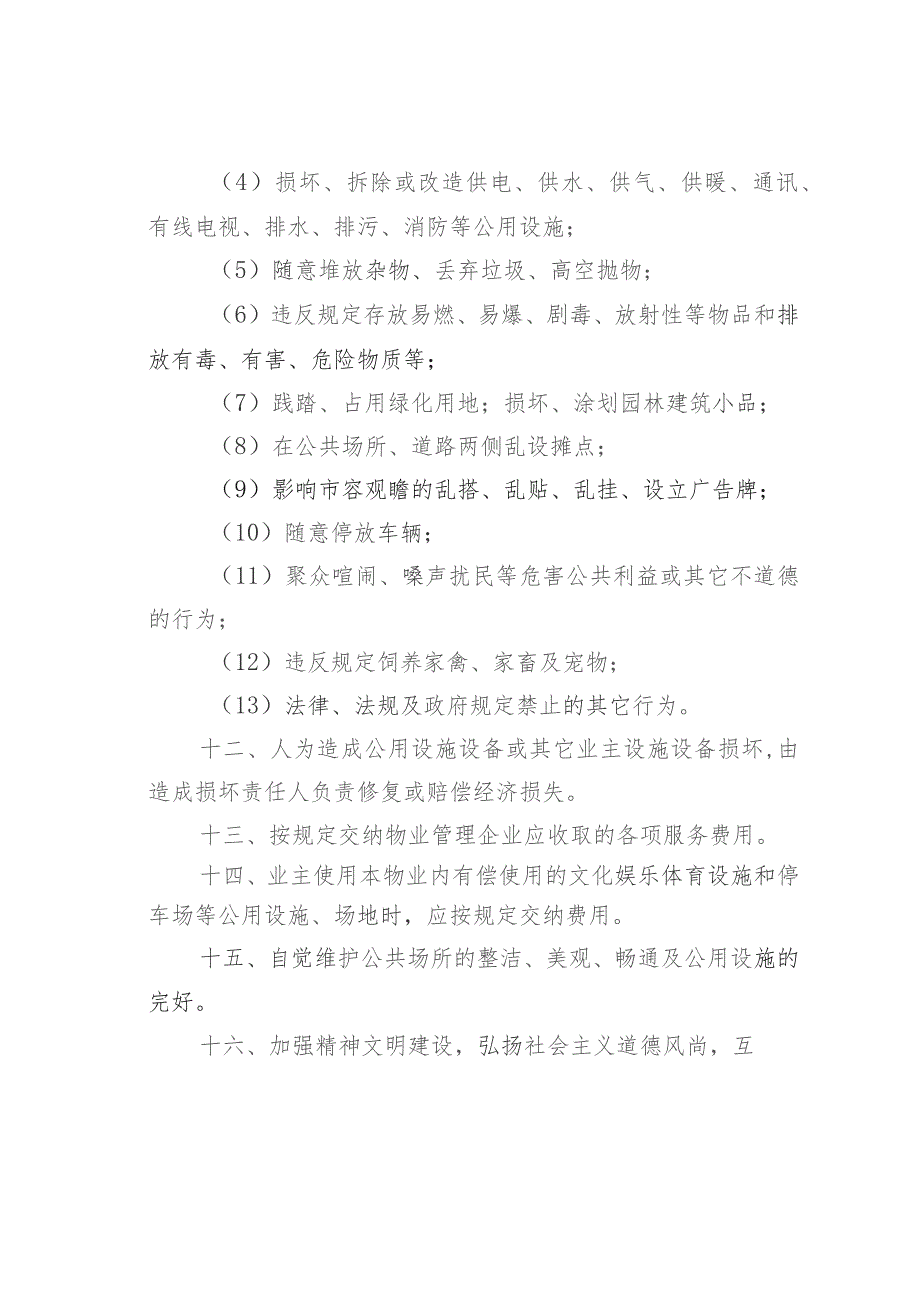 （4）损坏、拆除或改造供电、供水、供气、供暖、通讯、
有线电视、排水、排污、消防等公用设施；
（5）随意堆放杂物、丢弃垃圾、高空抛物；
（6）违反规定存放易燃、易爆、剧毒、放射性等物品和排
放有毒、有害、危险物质等；
（7）践踏、占用绿化用地；损坏、涂划园林建筑小品；
（8）在公共场所、道路两侧乱设摊点；
（9）影响市容观瞻的乱搭、乱贴、乱挂、设立广告牌；
（10）随意停放车辆；
（11）聚众喧闹、嗓声扰民等危害公共利益或其它不道德
的行为；
（12）违反规定饲养家禽、家畜及宠物；
（13）法律、法规及政府规定禁止的其它行为。
十二、人为造成公用设施设备或其它业主设施设备损坏,由
造成损坏责任人负责修复或赔偿经济损失。
十三、按规定交纳物业管理企业应收取的各项服务费用。
十四、业主使用本物业内有偿使用的文化娱乐体育设施和停
车场等公用设施、场地时，应按规定交纳费用。
十五、自觉维护公共场所的整洁、美观、畅通及公用设施的
完好。
十六、加强精神文明建设，弘扬社会主义道德风尚，互